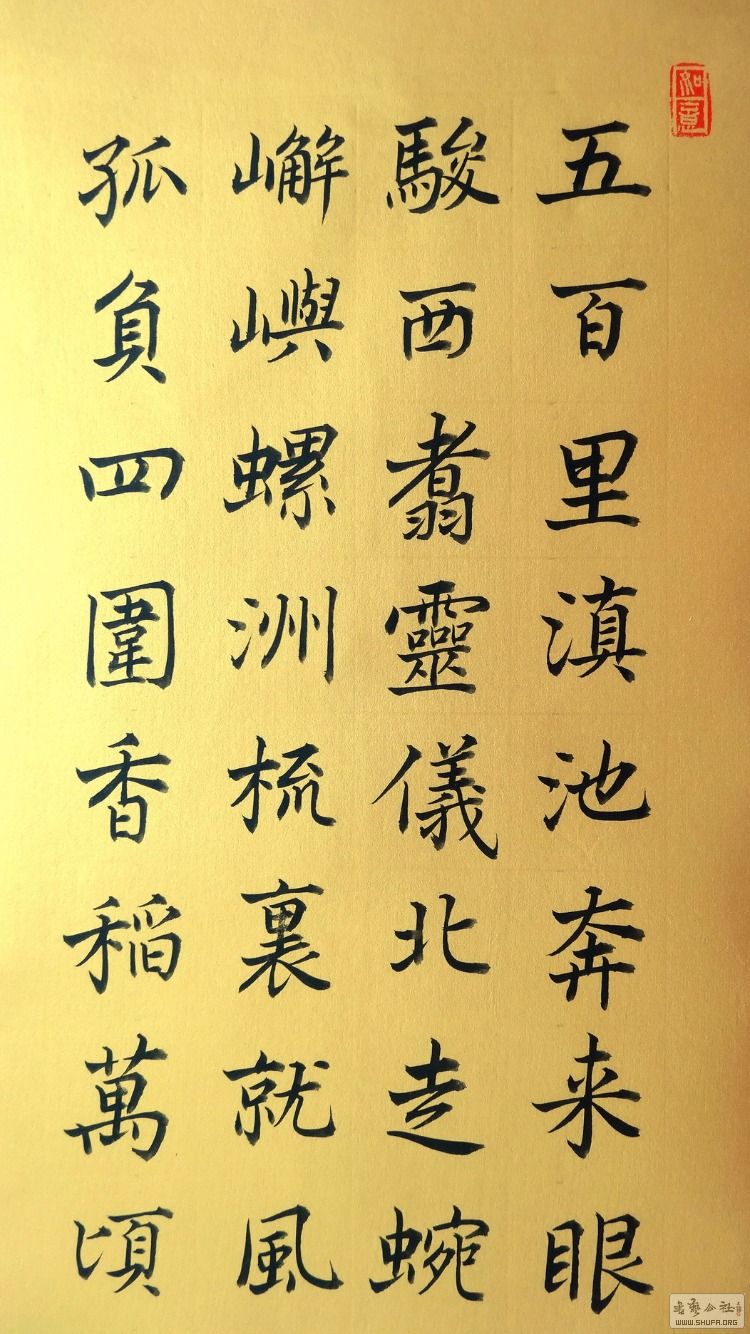 如意
五百里滇池奔来眼
駿西翥靈儀北走蜿
嶰嶼螺洲梳裏就風
孤負四圍香稻萬頃
書藝公社
WWW.SHUFA.ORG